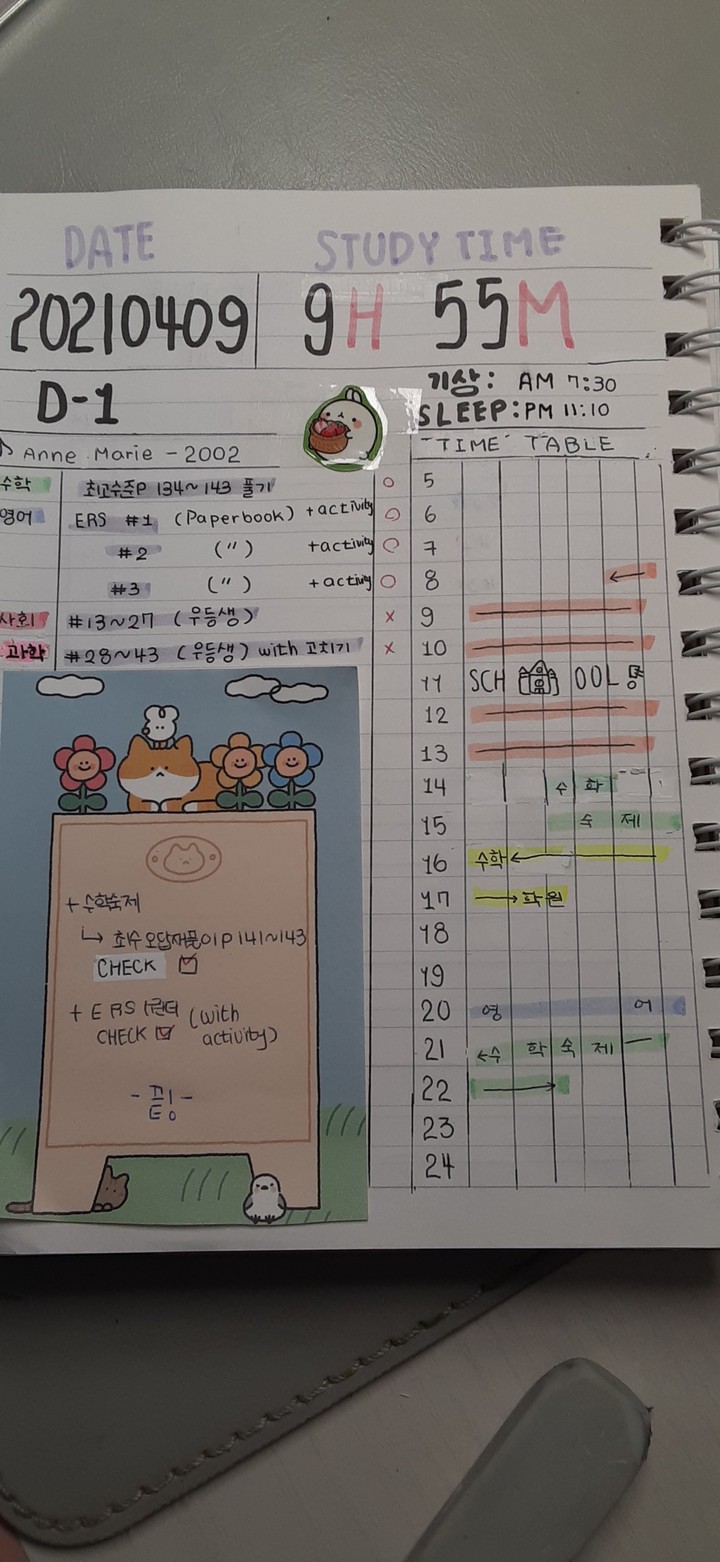 DATE STUDY TIME
20210409 9H 55M
D-1
기상: AM 7:30
SLEEP: PM 11:10
♪ Anne Marie - 2002
"TIME" TABLE
수학 최고수준P 134~143 풀기 O
영어 ERS #1 (Paperbook) +activity O
#2 (〃) +activity O
#3 (〃) +activity O
사회 #13~27 (우등생) X
과학 #28~43 (우등생) with 고치기 X
+ 수학숙제
↳ 최수 오답재풀이 P 141~143
CHECK ☑
+ ERS (with activity)
CHECK ☑
5
6
7
8 ←
9
10
11 SCHOOL
12
13
14 수 학
15 숙 제
16 수학 ←
17 → 학원
18
19
20 영 어
21 ←수 학 숙 제 —
22 →
23
24